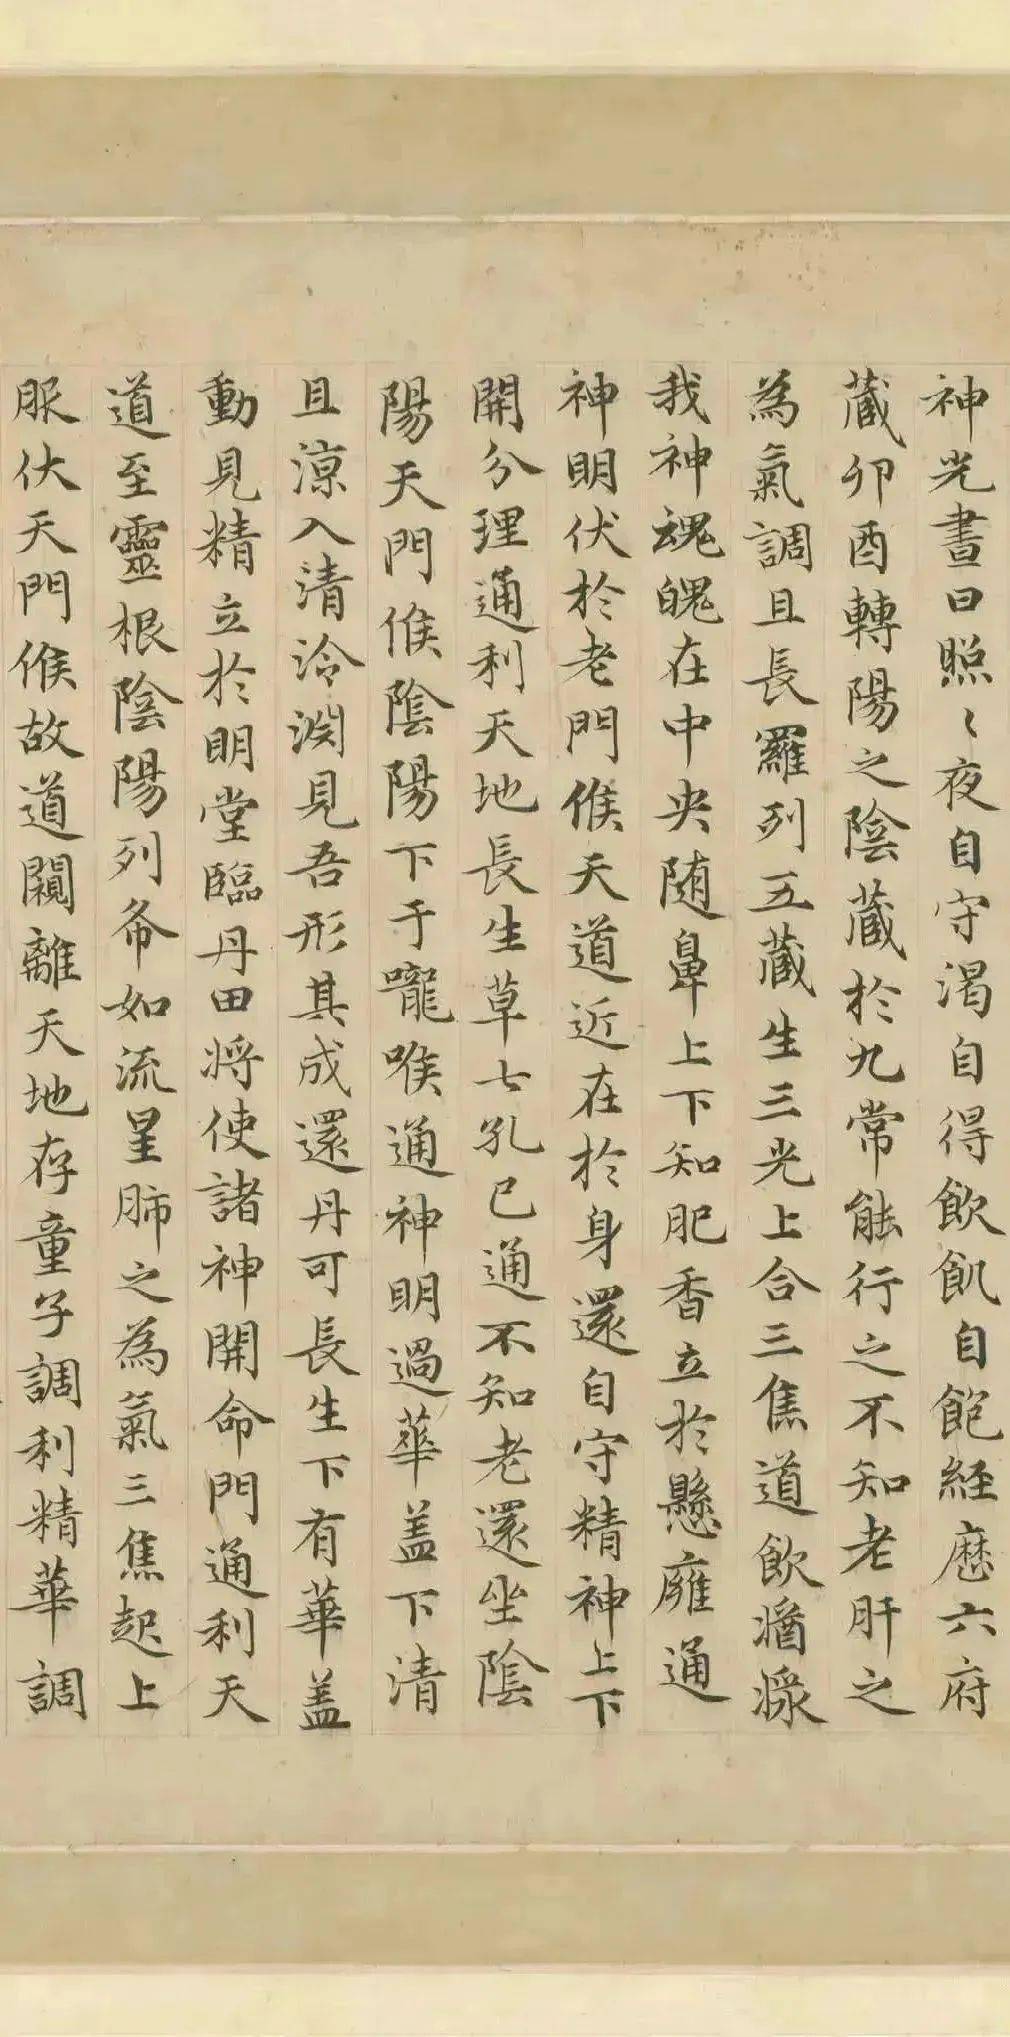 神光晝日照〻夜自守渴自得飲飢自飽経歷六府
蔵卯酉轉陽之陰蔵於九常能行之不知老肝之
為氣調且長羅列五蔵生三光上合三焦道飲醬漿
我神魂魄在中央随鼻上下知肥香立於懸癰通
神明伏於老門候天道近在於身還自守精神上下
開分理通利天地長生草七孔已通不知老還坐陰
陽天門候陰陽下于嚨喉通神明過華盖下清
且涼入清泠渕見吾形其成還丹可長生下有華盖
動見精立於明堂臨丹田将使諸神開命門通利天
道至靈根陰陽列布如流星肺之為氣三焦起上
服伏天門候故道闚離天地存童子調利精華調